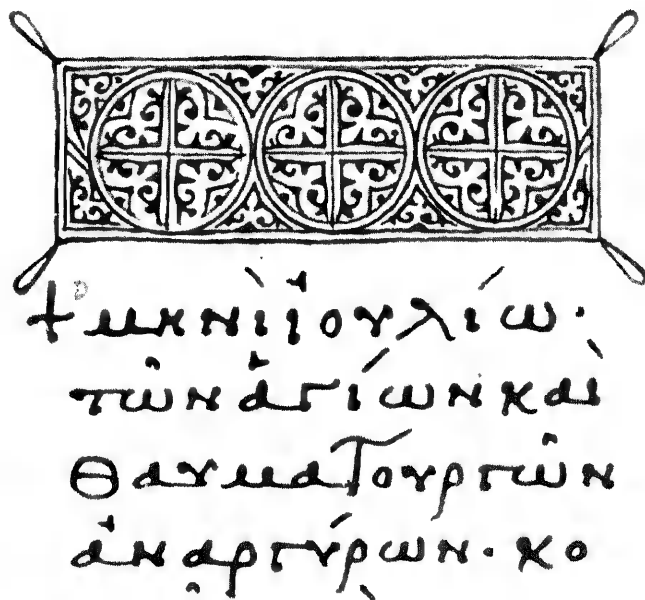 + μηνὶ ἰουλίω·
τῶν ἁγίων καὶ
θαυματουργῶν
ἀναργύρων· κο